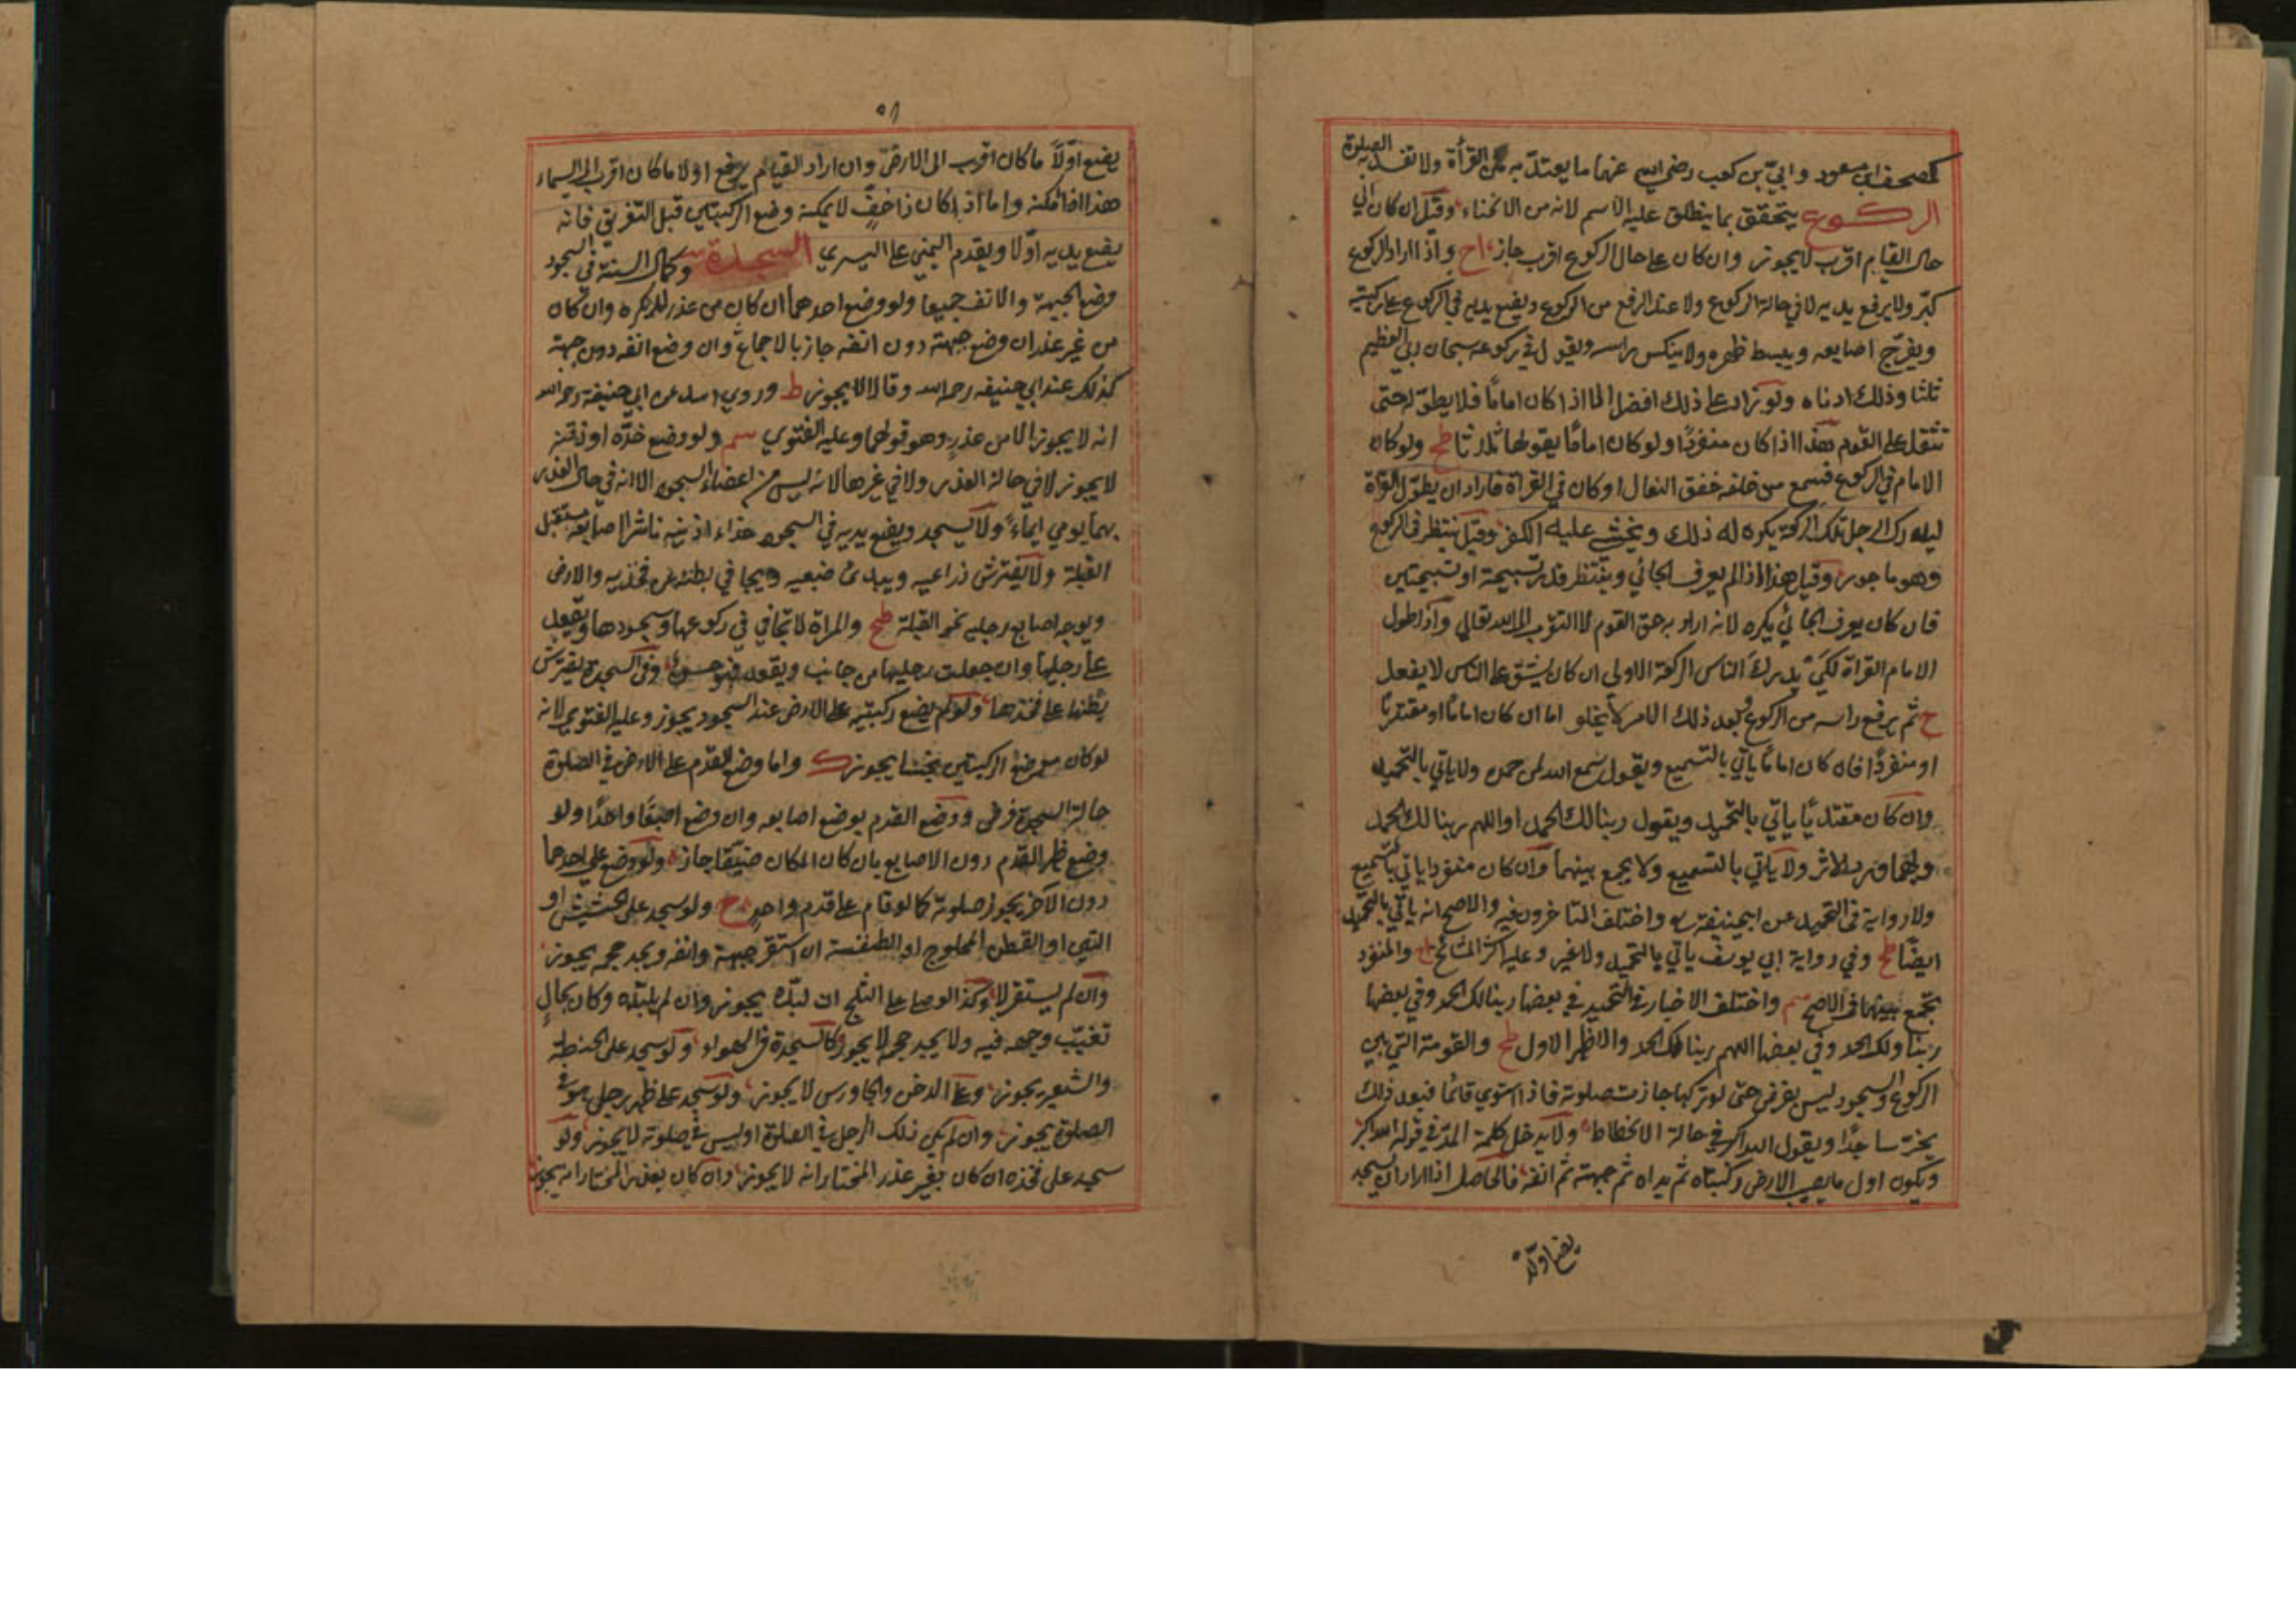 كمصحف ابن مسعود وابيّ بن كعب رضي الله عنهما ما يعتدّ به من القرأة ولا تفسد به الصلوة
الركوع يتحقق بما ينطلق عليه الاسم لانه من الانحناء وقيل ان كان الي
حال القيام اقرب لا يجوز وان كان علي حال الركوع اقرب جاز اح واذا اراد الركوع
كبّر ولا يرفع يديه لا في حالة الركوع ولا عند الرفع من الركوع ويضع يديه في الركوع علي ركبتيه
ويفرّج اصابعه ويبسط ظهره ولا ينكس راسه ويقول في ركوعه سبحان ربي العظيم
ثلثا وذلك ادناه ولو زاد علي ذلك افضل الا اذا كان اماما فلا يطوّله حتى
تثقل علي القوم هذا اذا كان منفردًا ولو كان امامًا يقولها ثلاثا طح ولو كان
الامام في الركوع فسمع من خلفه خفق النعال او كان في القراة فاراد ان يطوّل القراة
ليدرك الرجل تلك الركعة يكره له ذلك ويخشي عليه الكفر وقيل ينتظر في الركوع
وهو ماجور وقيل هذا اذا لم يعرف الجائي وينتظر قدر تسبيحة او تسبيحتين
فان كان يعرف الجائي يكره لانه اراد به حق القوم لا التقرب الي الله تعالي واذ اطول
الامام القراة لكي يدرك الناس الركعة الاولي ان كان يشق علي الناس لا يفعل
ح ثم يرفع راسه من الركوع فبعد ذلك الامر لا يخلو اما ان كان امامًا او مقتديًا
او منفردًا فان كان امامًا ياتي بالتسميع ويقول سمع الله لمن حمده ولا ياتي بالتحميد
وان كان مقتديًا ياتي بالتحميد ويقول ربنا لك الحمد او اللهم ربنا لك الحمد
وبهما ورد الاثر ولا ياتي بالتسميع ولا يجمع بينهما وان كان منفردا ياتي بالتسميع
ولا رواية في التحميد عن ابيحنيفة واختلف المتاخرون فيه والاصح انه ياتي بالتحميد
ايضًا طح وفي رواية ابي يوسف ياتي بالتحميد ولا غير وعليه اكثر المشائخ والمنفرد
يجمع بينهما في الاصح واختلف الاخبار في التحميد في بعضها ربنا لك الحمد وفي بعضها
ربنا ولك الحمد وفي بعضها اللهم ربنا لك الحمد والاظهر الاول طح والقومة التي بين
الركوع والسجود ليس بفرض حتى لو تركها جازت صلوته فاذا استوي قائما فبعد ذلك
يخرّ ساجدًا ويقول الله اكبر في حالة الانحطاط ولا يدخل كلمة المدّ في قوله الله اكبر
ويكون اول ما يصيب الارض ركبتاه ثم يداه ثم جبهته ثم انفه فالحاصل اذا اراد ان يسجد
يضع اولًا
٥١
يضع اوّلًا ما كان اقرب الى الارض وان اراد القيام يرفع اولا ما كان اقرب الي السماء
هذا اذا امكنه واما اذا كان ذا خفٍّ لا يمكنه وضع الركبتين قبل التفريق فانه
يضع يديه اوّلا ويقدم اليمني علي اليسري السجدة وكمال السنة في السجود
وضع الجبهة والانف جميعا ولو وضع احدهما ان كان من عذر لا يكره وان كان
من غير عذر ان وضع جبهته دون انفه جاز بالاجماع وان وضع انفه دون جبهته
كذلك عند ابي حنيفه رحمه الله وقالا لا يجوز ط وروي اسد عن ابي حنيفة رحمه الله
انه لا يجوز الا من عذر وهو قولهما وعليه الفتوي سم ولو وضع خدّه او ذقنه
لا يجوز لا في حالة العذر ولا في غيرها لانه ليس من اعضاء السجود الا انه في حال العذر
بهما يومي ايماءً ولا يسجد ويضع يديه في السجود حذاء اذنيه ناشرا اصابعه مستقبل
القبلة ولا يفترش ذراعيه ويبدئ ضبعيه ويجافي بطنه عن فخذيه والارض
ويوجه اصابع رجليه نحو القبلة طح والمراة لا تجافي في ركوعها وسجودها وتقعد
علي رجليها وان جعلت رجليها من جانب وتقعد فهو حسن وفي السجدة تفترش
بطنها علي فخذها ولو لم يضع ركبتيه علي الارض عند السجود يجوز وعليه الفتوي لانه
لو كان موضع الركبتين نجسًا يجوز ك واما وضع القدم علي الارض في الصلوة
حالة السجدة فرض ووضع القدم بوضع اصابعه وان وضع اصبعًا واحدًا ولو
وضع ظهر القدم دون الاصابع بان كان المكان ضيّقا جاز ولو وضع علي احدهما
دون الآخر يجوز صلوته كما لو قام علي قدم واحدٍ ح ولو سجد علي الحشيش او
التبن او القطن المحلوج او الطنفسة ان استقر جبهته وانفه ويجد حجمه يجوز
وان لم يستقر لا وكذا لو صلى علي الثلج ان لبّده يجوز وان لم يلبّده وكان بحالٍ
تغيّب وجهه فيه ولا يجد حجمه لا يجوز كالسجدة في الهواء ولو سجد علي الحنطة
والشعير يجوز وعلي الدخن والجاورس لا يجوز ولو سجد علي ظهر رجل هو في
الصلوة يجوز وان لم يكن ذلك الرجل في الصلوة او ليس في صلوته لا يجوز ولو
سجد علي فخذه ان كان بغير عذر المختار انه لا يجوز وان كان بعذر المختار انه يجوز